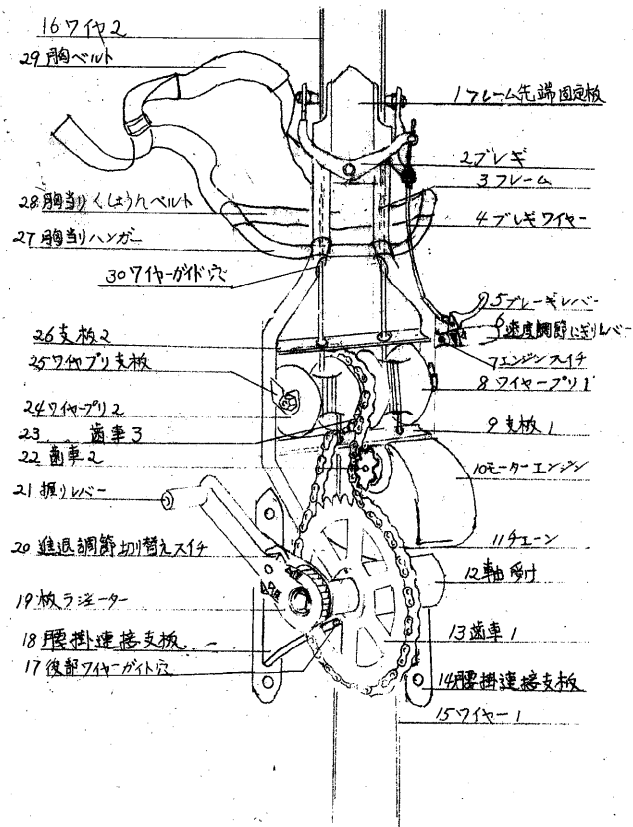 16ワイヤ2
29胸ベルト
28胸当りくしょうんベルト
27胸当りハンガー
30ワイヤーガイド穴
26支板2
25ワイヤプリ支板
24ワイヤープリ2
23 歯車3
22 歯車2
21 握りレバー
20 進退調節切替えスイチ
19板ラジェーター
18腰掛連接支板
17後部ワイヤーガイト穴
1フレーム先端固定板
2ブレギ
3フレーム
4ブレギワイヤー
5ブレーギレバー
6速度調節にぎりレバー
7エンジンスイチ
8ワイヤープリ1
9支板1
10モーターエンジン
11チェーン
12軸受け
13歯車1
14腰掛連接支板
15ワイヤー1